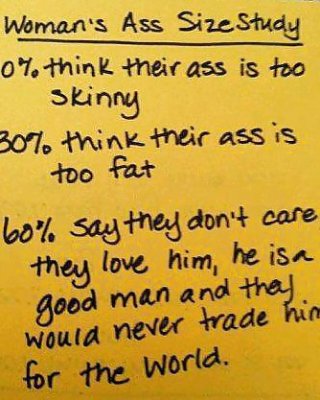 Woman's Ass Size Study
0% think their ass is too
skinny
30% think their ass is
too fat
60% say they don't care
they love him, he is a
good man and they
would never trade him
for the World.